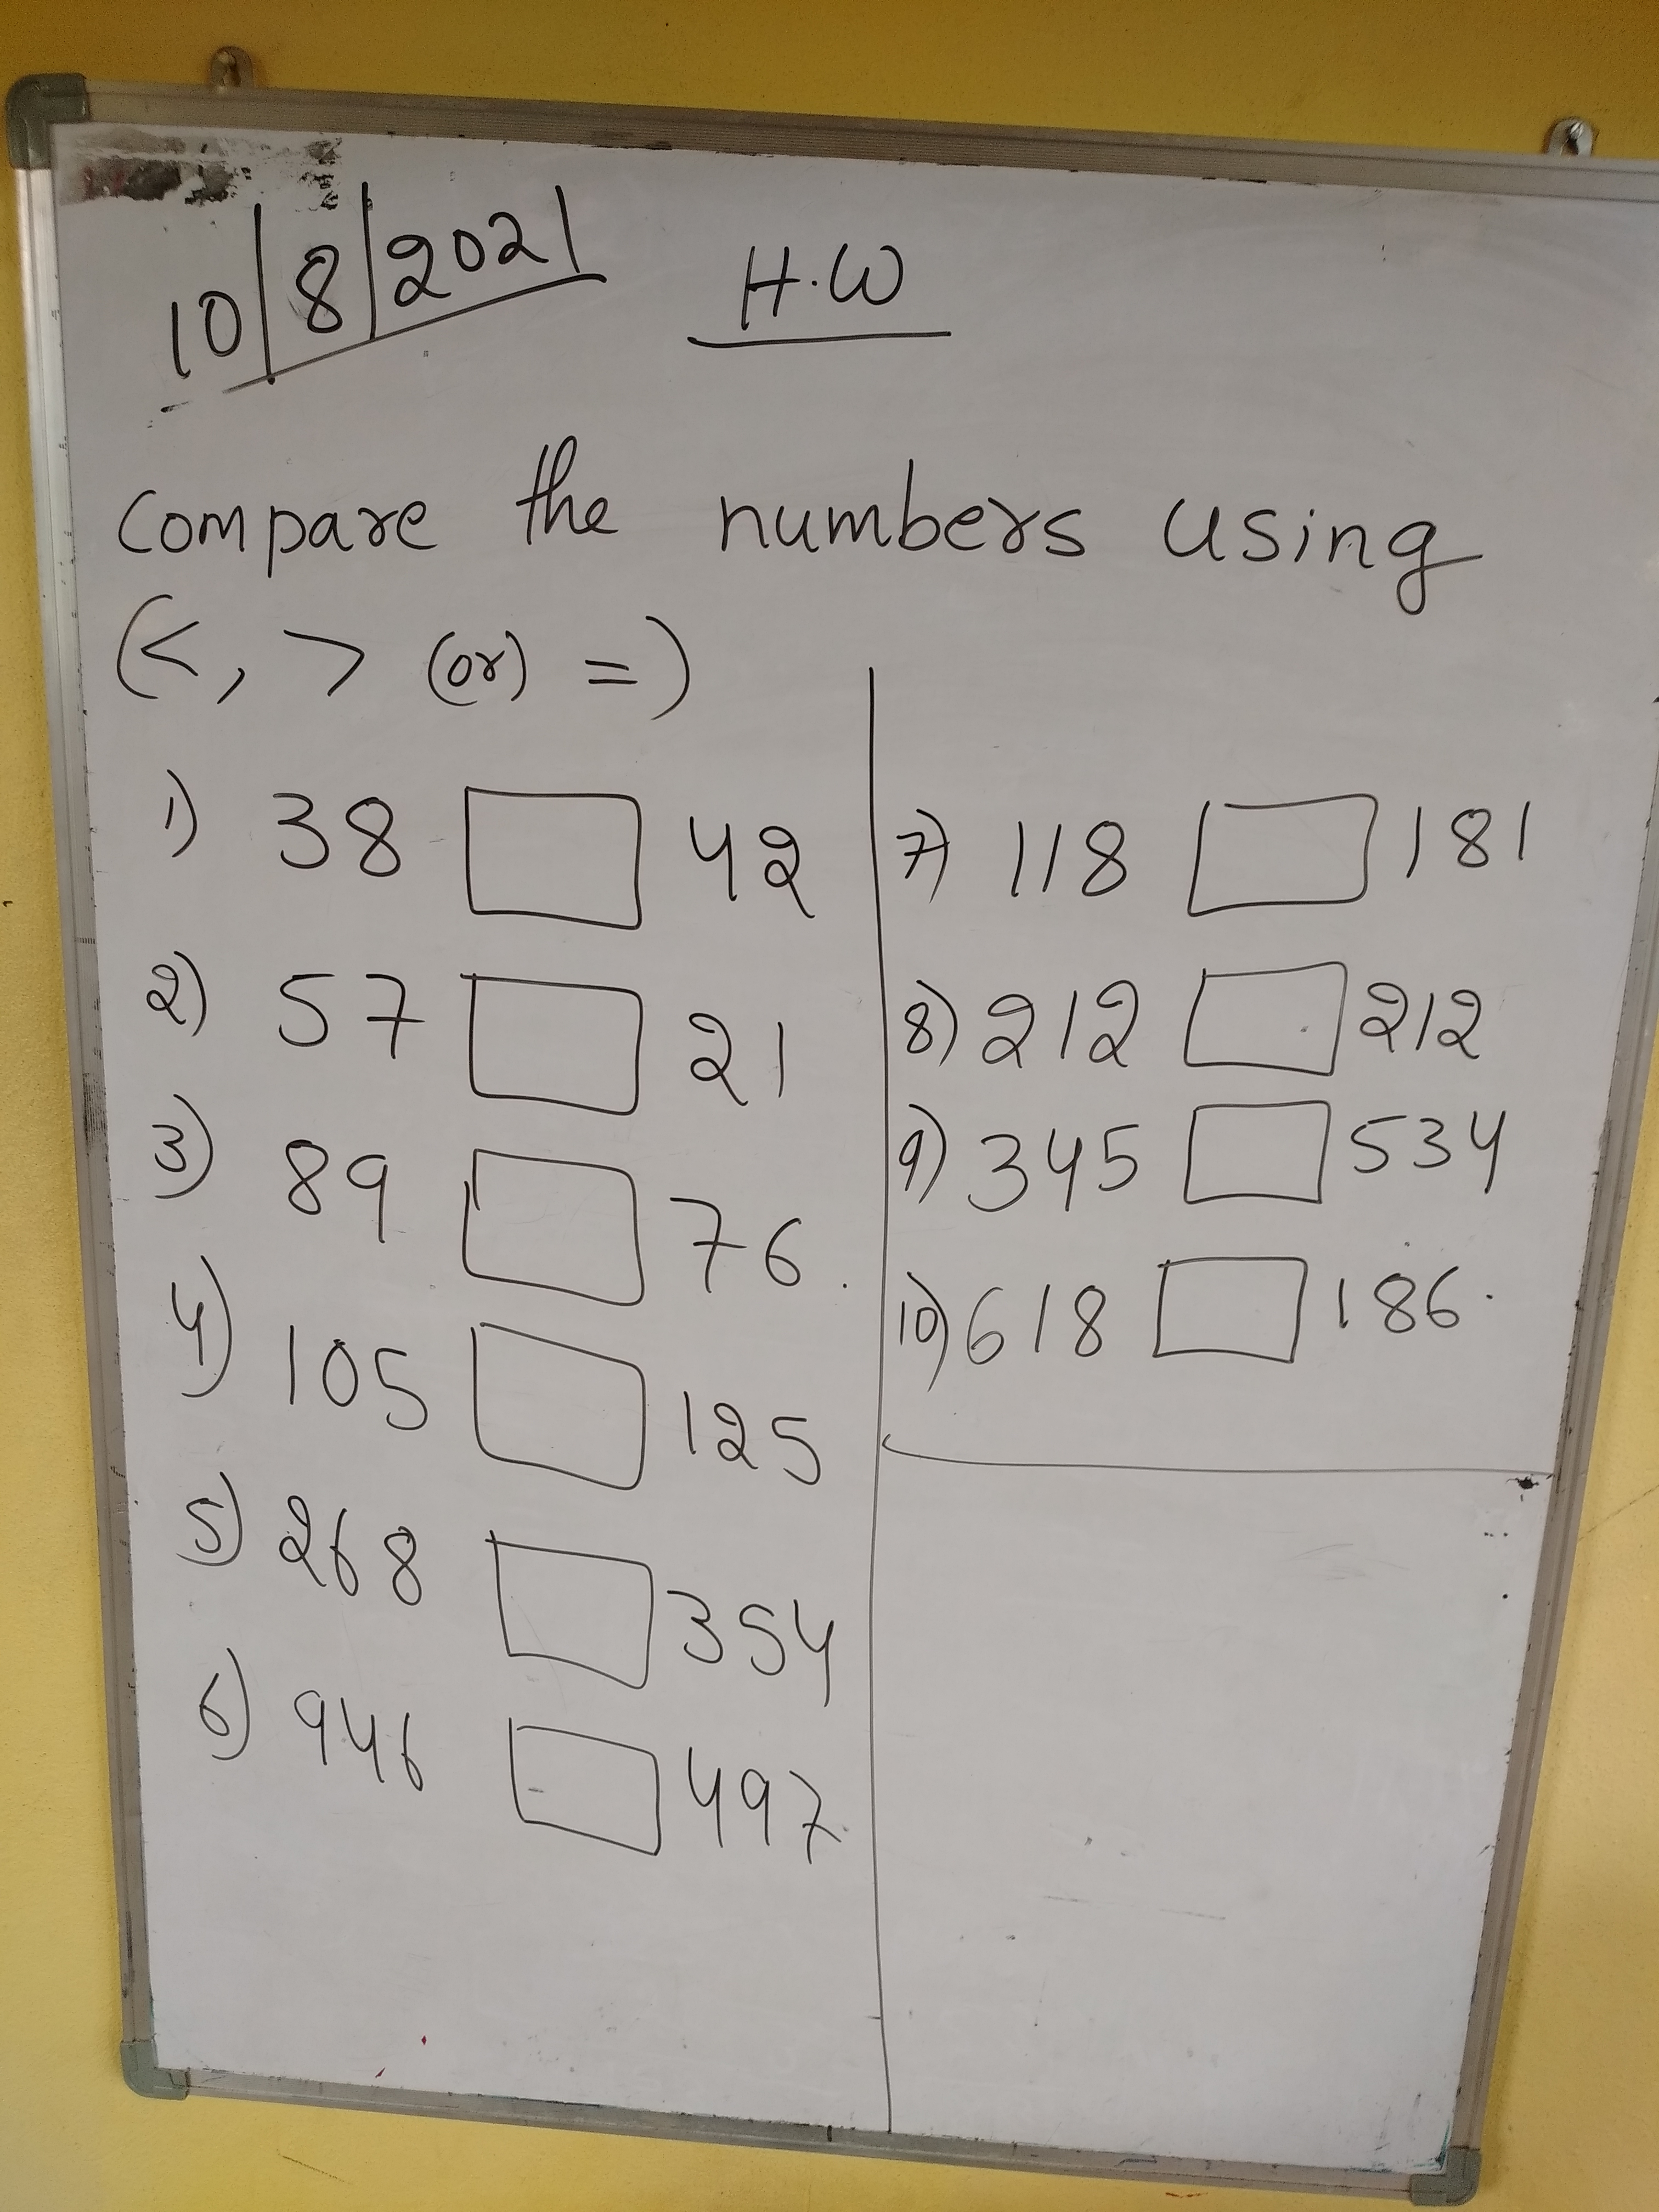 10/8/2021 H.W
Compare the numbers using
(<, > (or) =)
1) 38 42
2) 57 21
3) 89 76.
4) 105 125
5) 268 354
6) 946 497
7) 118 181
8) 212 212
9) 345 534
10) 618 186.